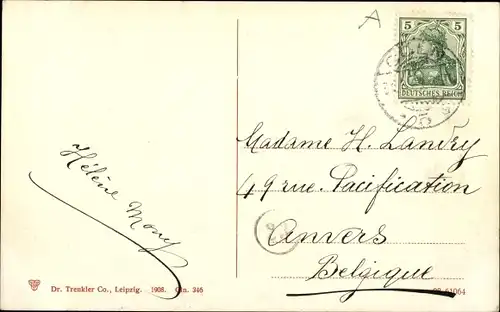 5 5
DEUTSCHES REICH
Madame H. Landry
49 rue. Pacification
Anvers
Belgique
Hélène Mony
Dr. Trenkler Co., Leipzig. 1908. Cln. 346
61064